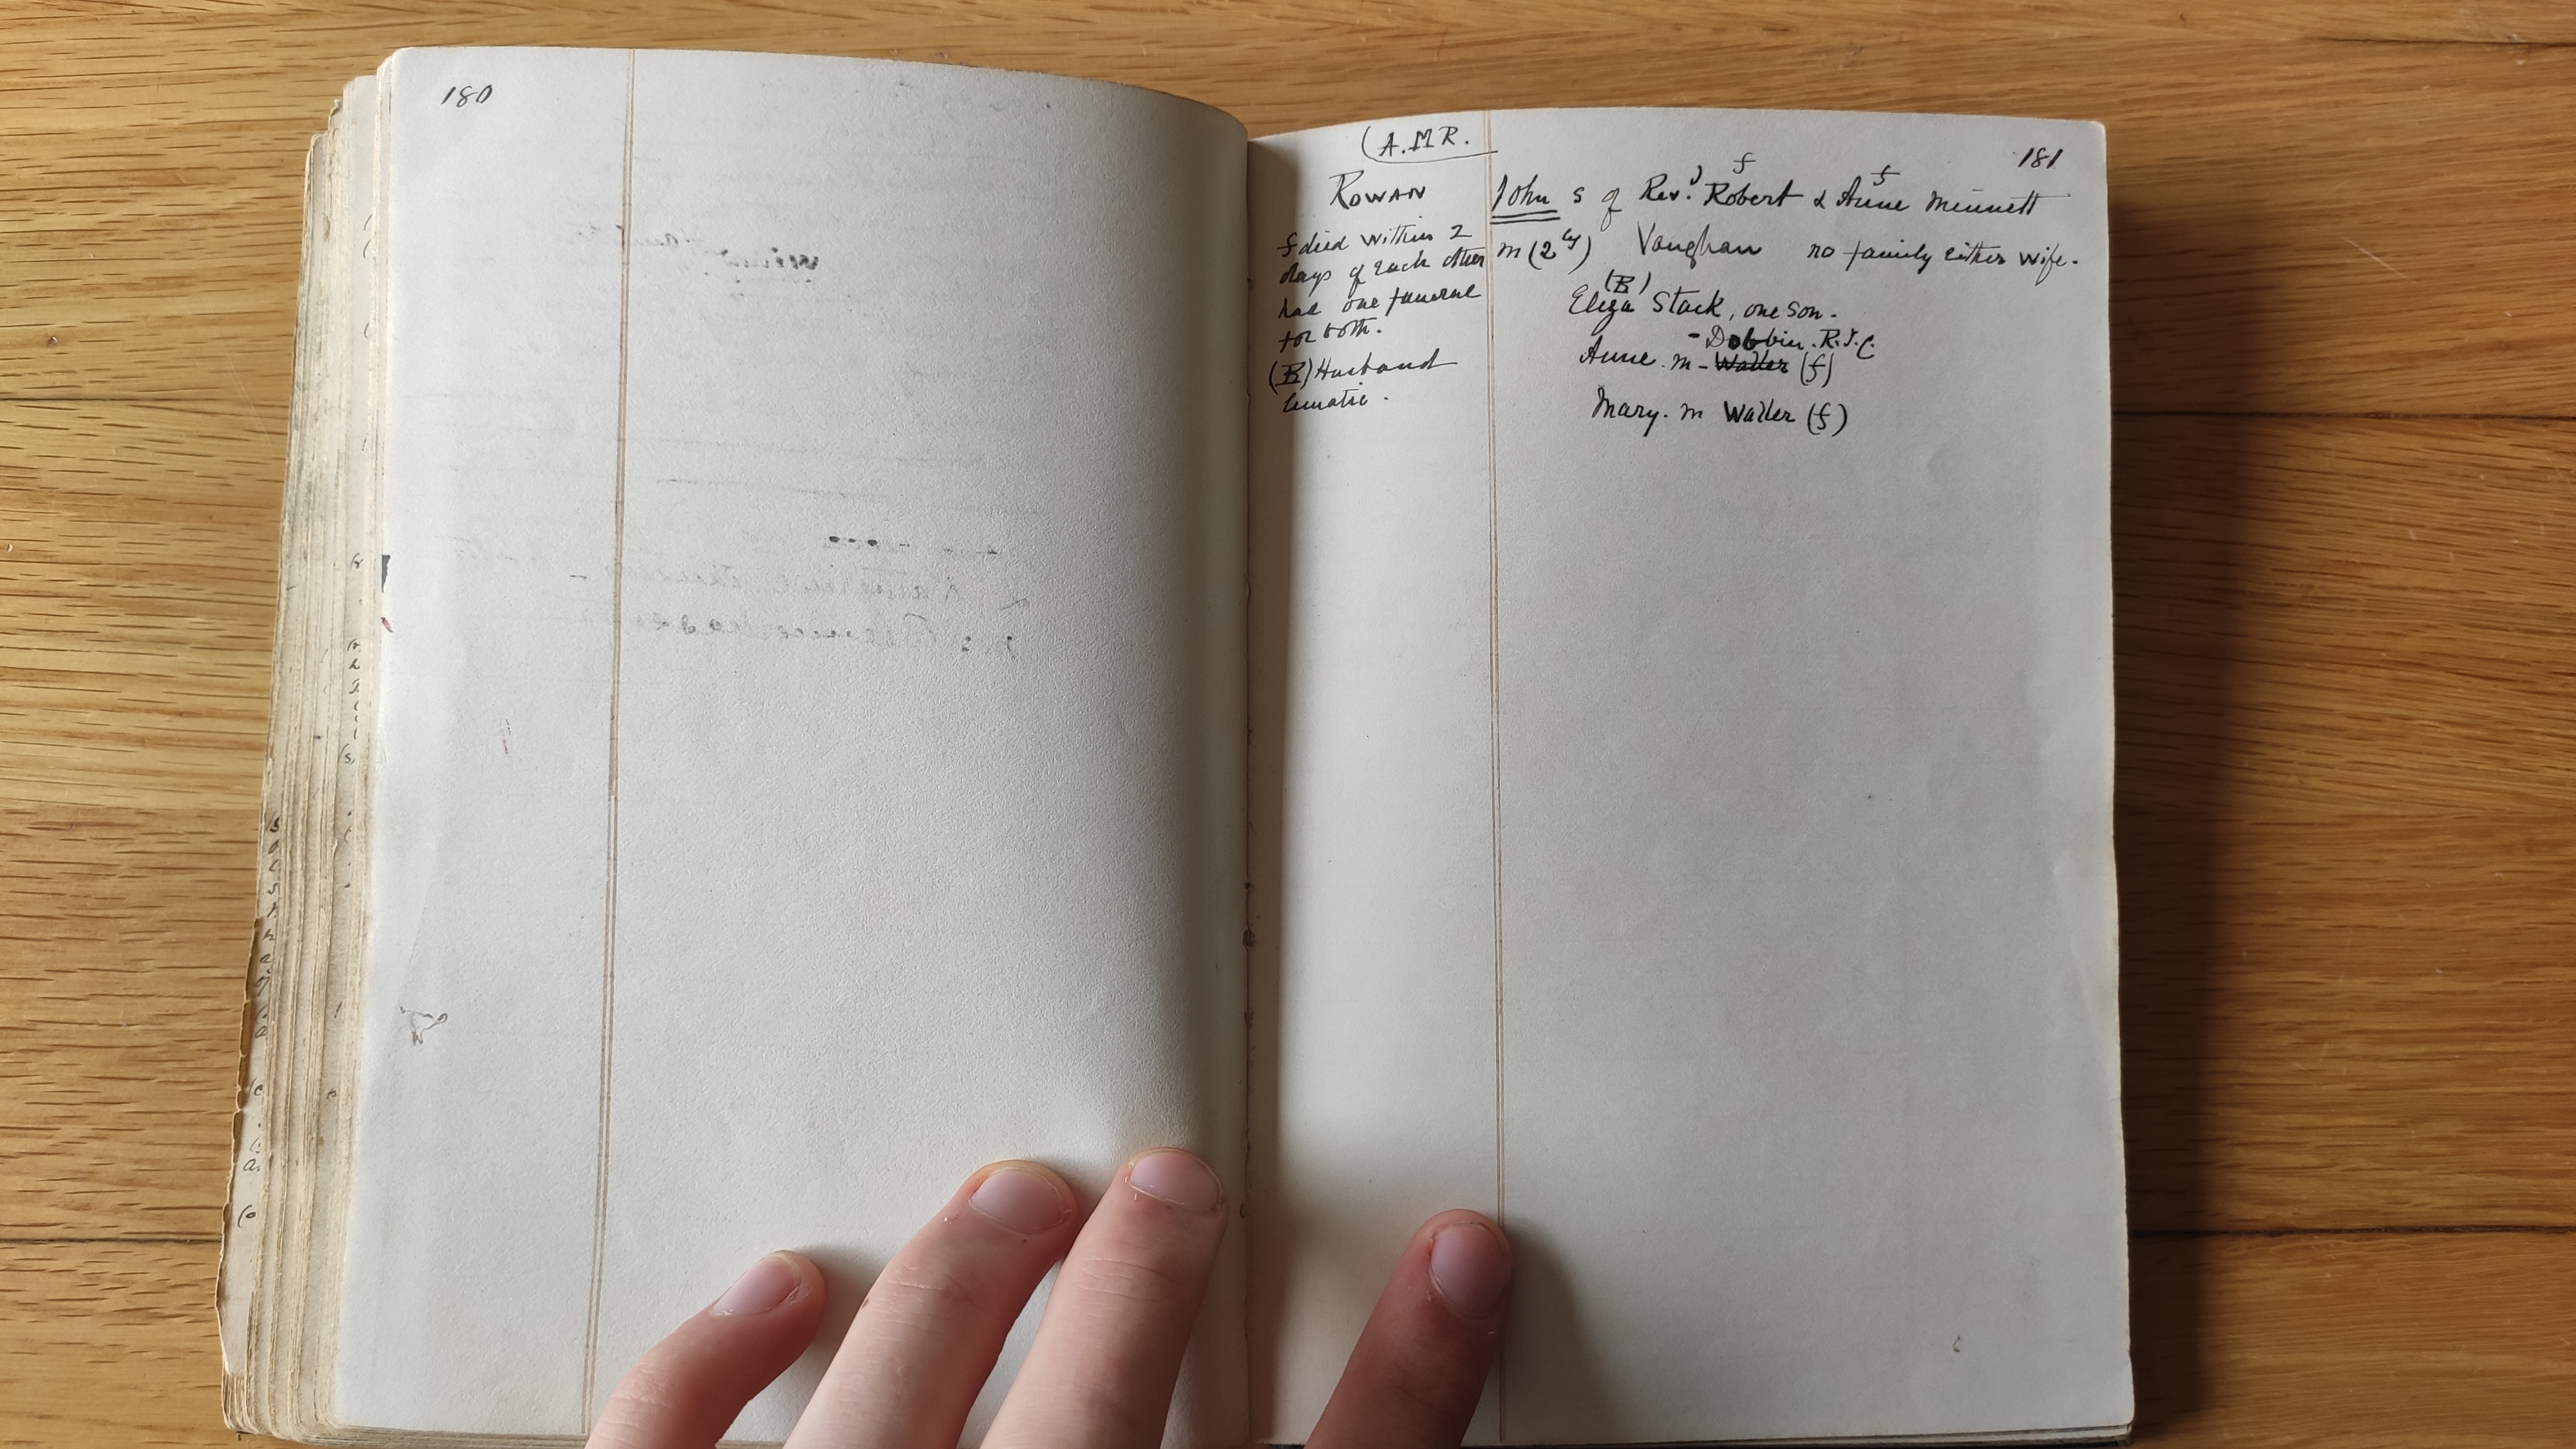 180
(A.M.R.
181
ROWAN
John s of Revd. Robert & Anne Minnett
f died within 2
days of each other
had one funeral
for both.
(B) Husband
lunatic.
m (2ly) Vaughan no family either wife.
(B)
Eliza Stack, one son.
- Dobbin. R.I.C.
Anne. m - Waller (f)
Mary. m Waller (f)